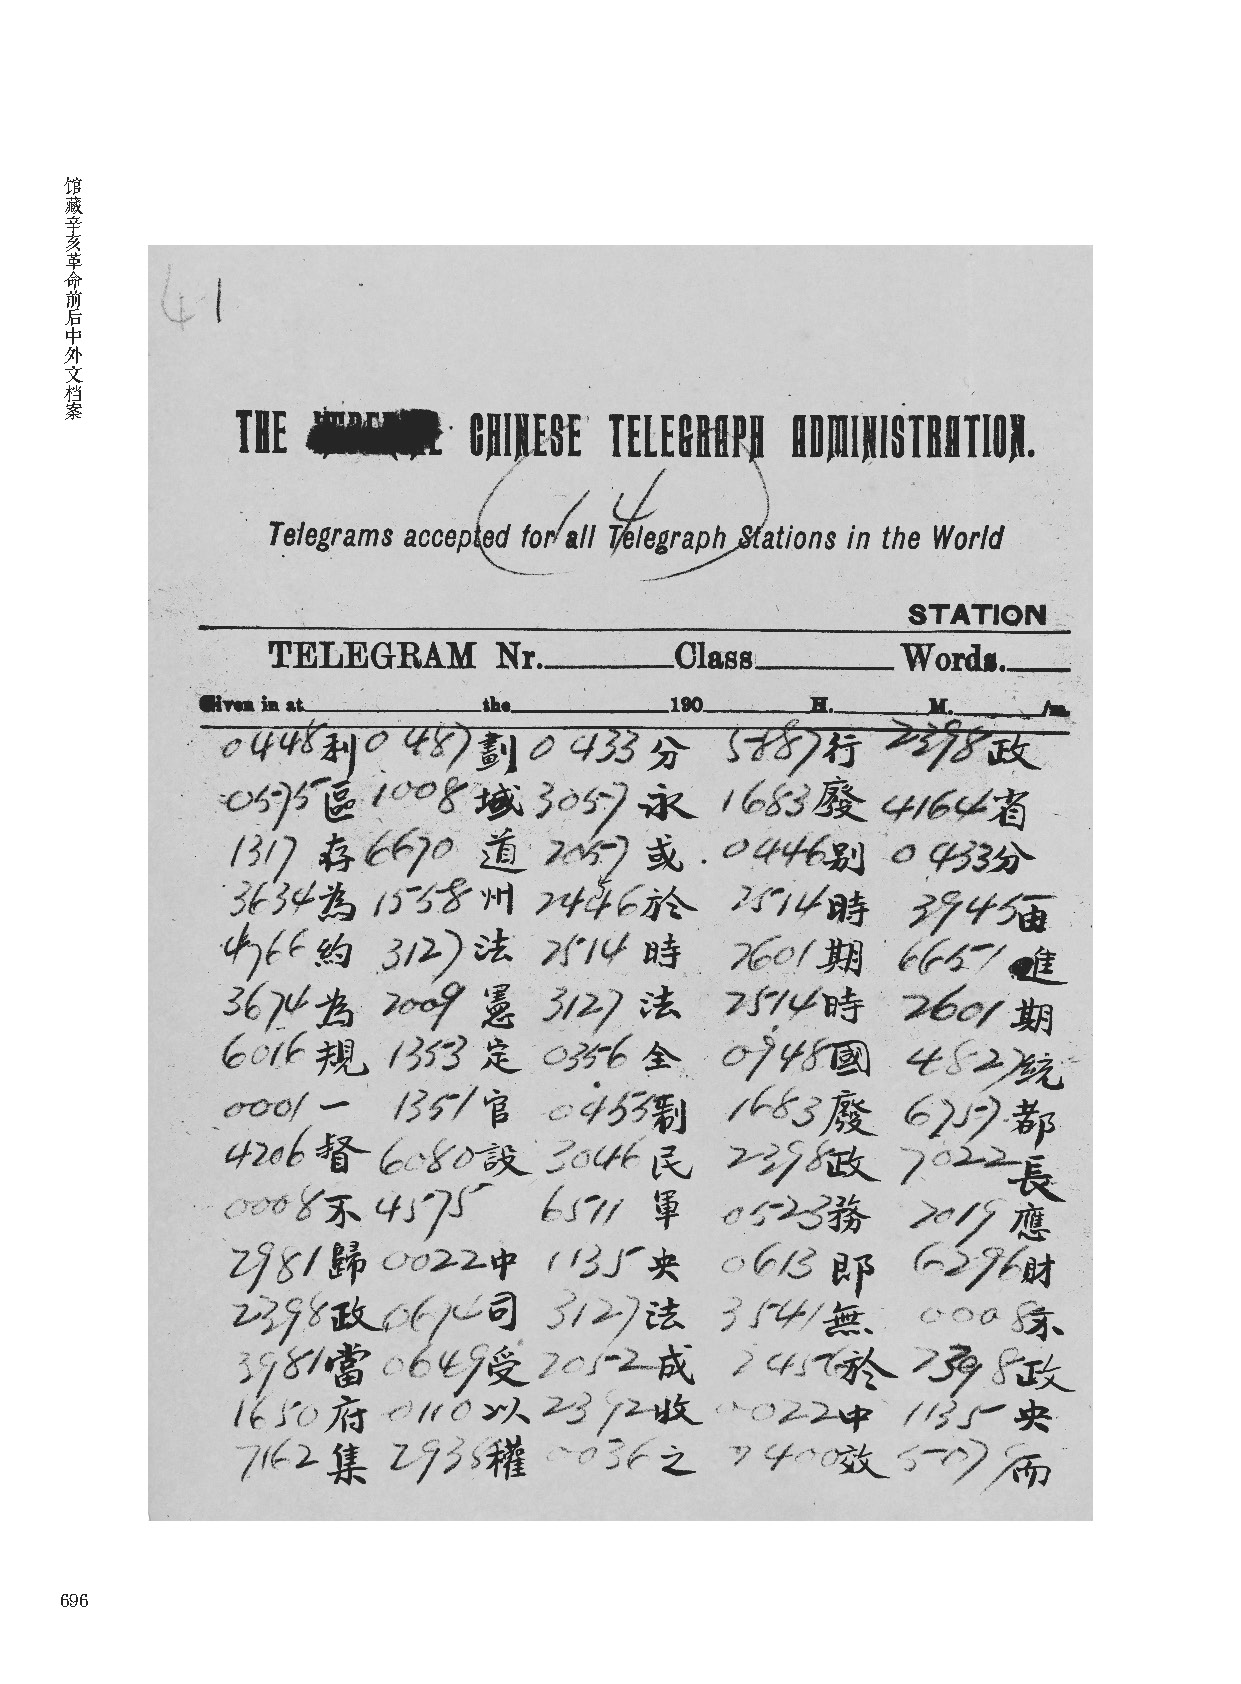 馆藏辛亥革命前后中外文档案
41
THE CHINESE TELEGRAPH ADMINISTRATION.
(14)
Telegrams accepted for all Telegraph Stations in the World
STATION
TELEGRAM Nr. Class Words.
Given in at the 190 H. M. /m
0448利 0487劃 0433分 5887行 2398政
0575區 1008域 3057永 1683廢 4164省
1317存 6670道 2057或 0446别 0433分
3634為 1558州 2446於 2514時 3945畱
4766約 3127法 2514時 2601期 6651進
3674為 2009憲 3127法 2514時 2601期
6016規 1353定 0356全 0948國 4827統
0001一 1351官 0453制 1683廢 6757都
4206督 6080設 3046民 2398政 7022長
0008不 4575 6511軍 0523務 2019應
2981歸 0022中 1135央 0613即 6296財
2398政 0674司 3127法 3541無 0008不
3981當 0649受 2052成 2456於 2398政
1650府 0110以 2392收 0022中 1135央
7162集 2938權 0036之 2400效 5079而
696